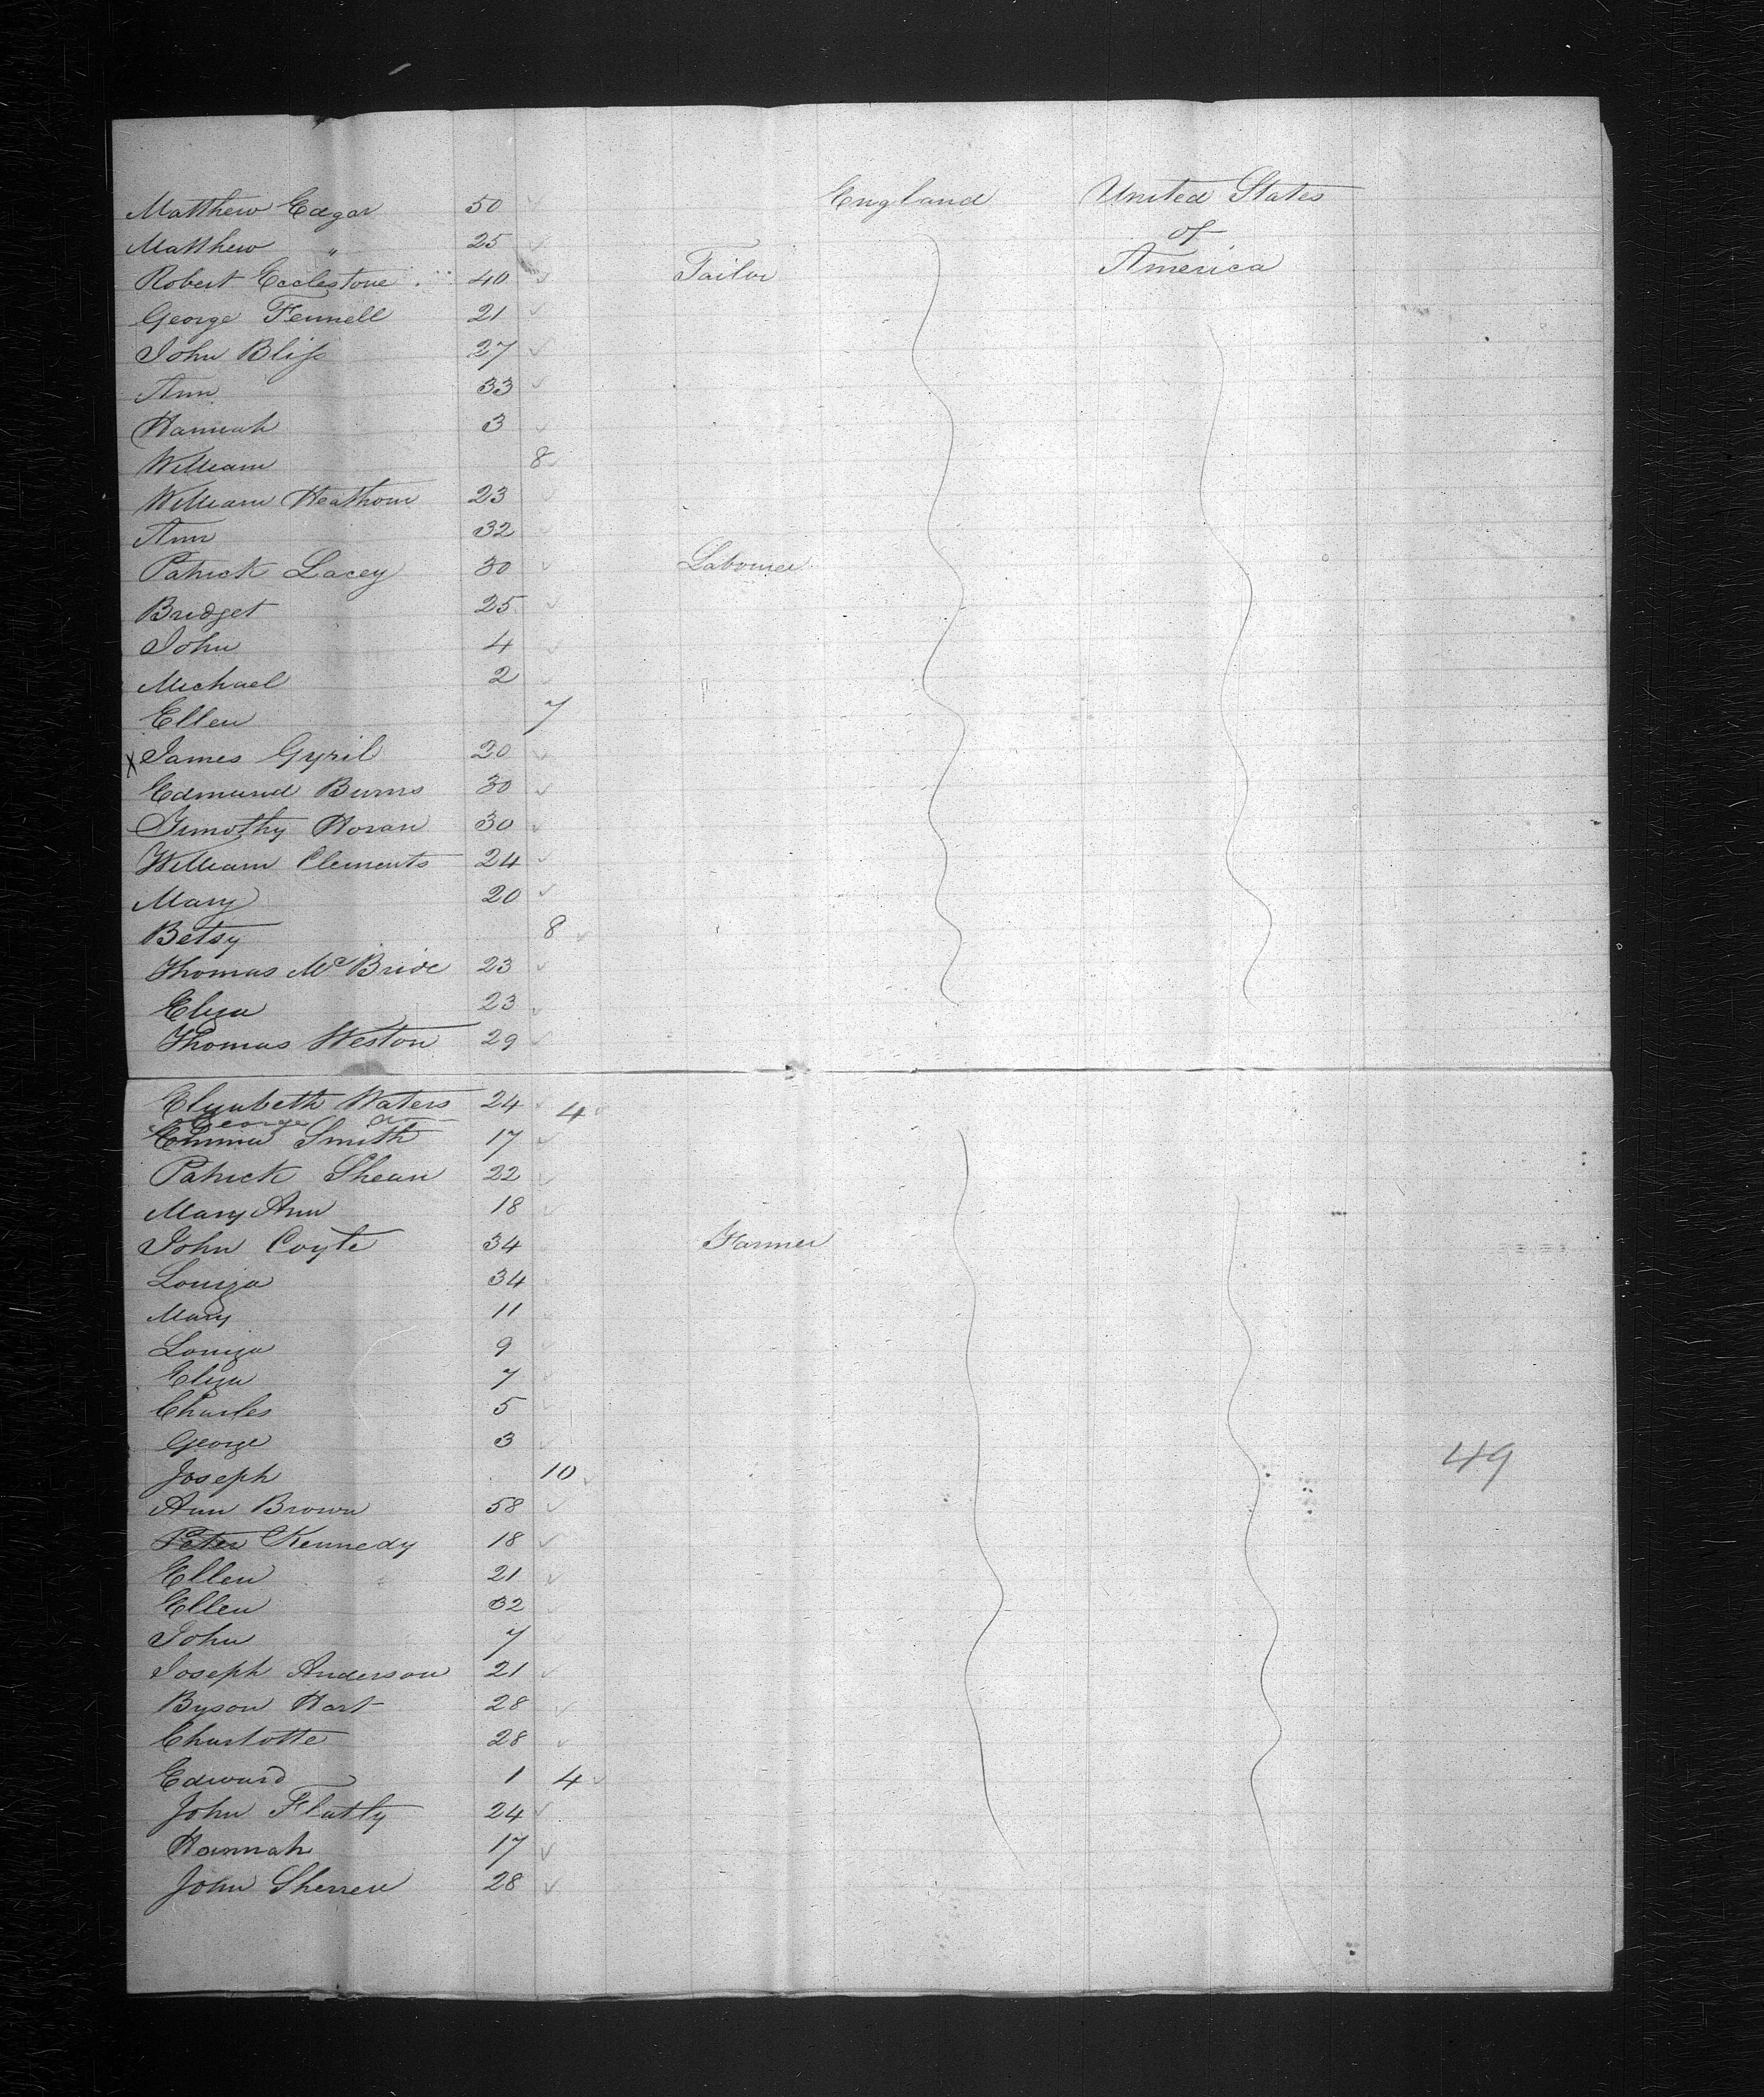 Matthew Edgar 50 England United States
Matthew " 25 of
Robert Ecclestone 40 Tailor America
George Fennell 21
John Bliss 27
Ann 33
Hannah 3
William 8
William Heathom 23
Ann 32
Patrick Lacey 30 Labourer
Bridget 25
John 4
Michael 2
Ellen 7
X James Gyril 20
Edmund Burns 30
Timothy Horan 30
William Clements 24
Mary 20
Betsy 8
Thomas McBride 23
Eliza 23
Thomas Weston 29
Elizabeth Waters 24
George Do 4
Emma Smith 17
Patrick Shean 22
Mary Ann 18
John Coyte 34 Farmer
Louiza 34
Mary 11
Louiza 9
Eliza 7
Charles 5
George 3
49
Joseph 10
Ann Brown 58
Peter Kennedy 18
Ellen 21
Ellen 32
John 7
Joseph Anderson 21
Byson Hart 28
Charlotte 28
Edward 1 4
John Flatly 24
Hannah 17
John Sherren 28